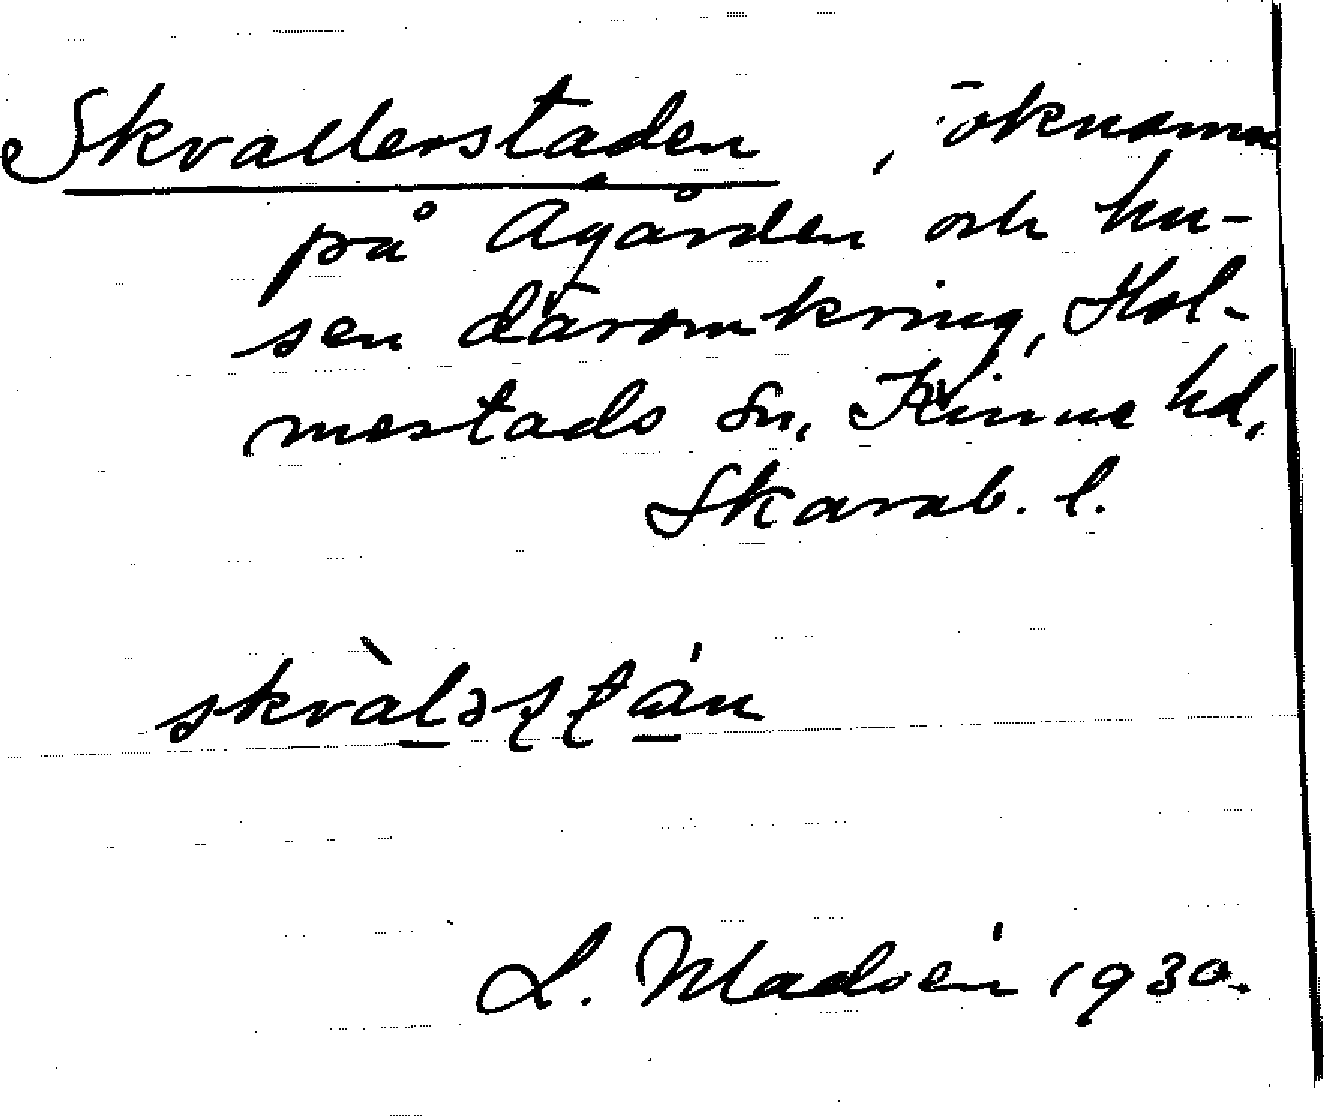 Skvallerstaden, öknamn
på Ågården och hu-
sen däromkring, Hol-
mestads sn, Kinne hd,
Skarab. l.
L. Madsén 1930.